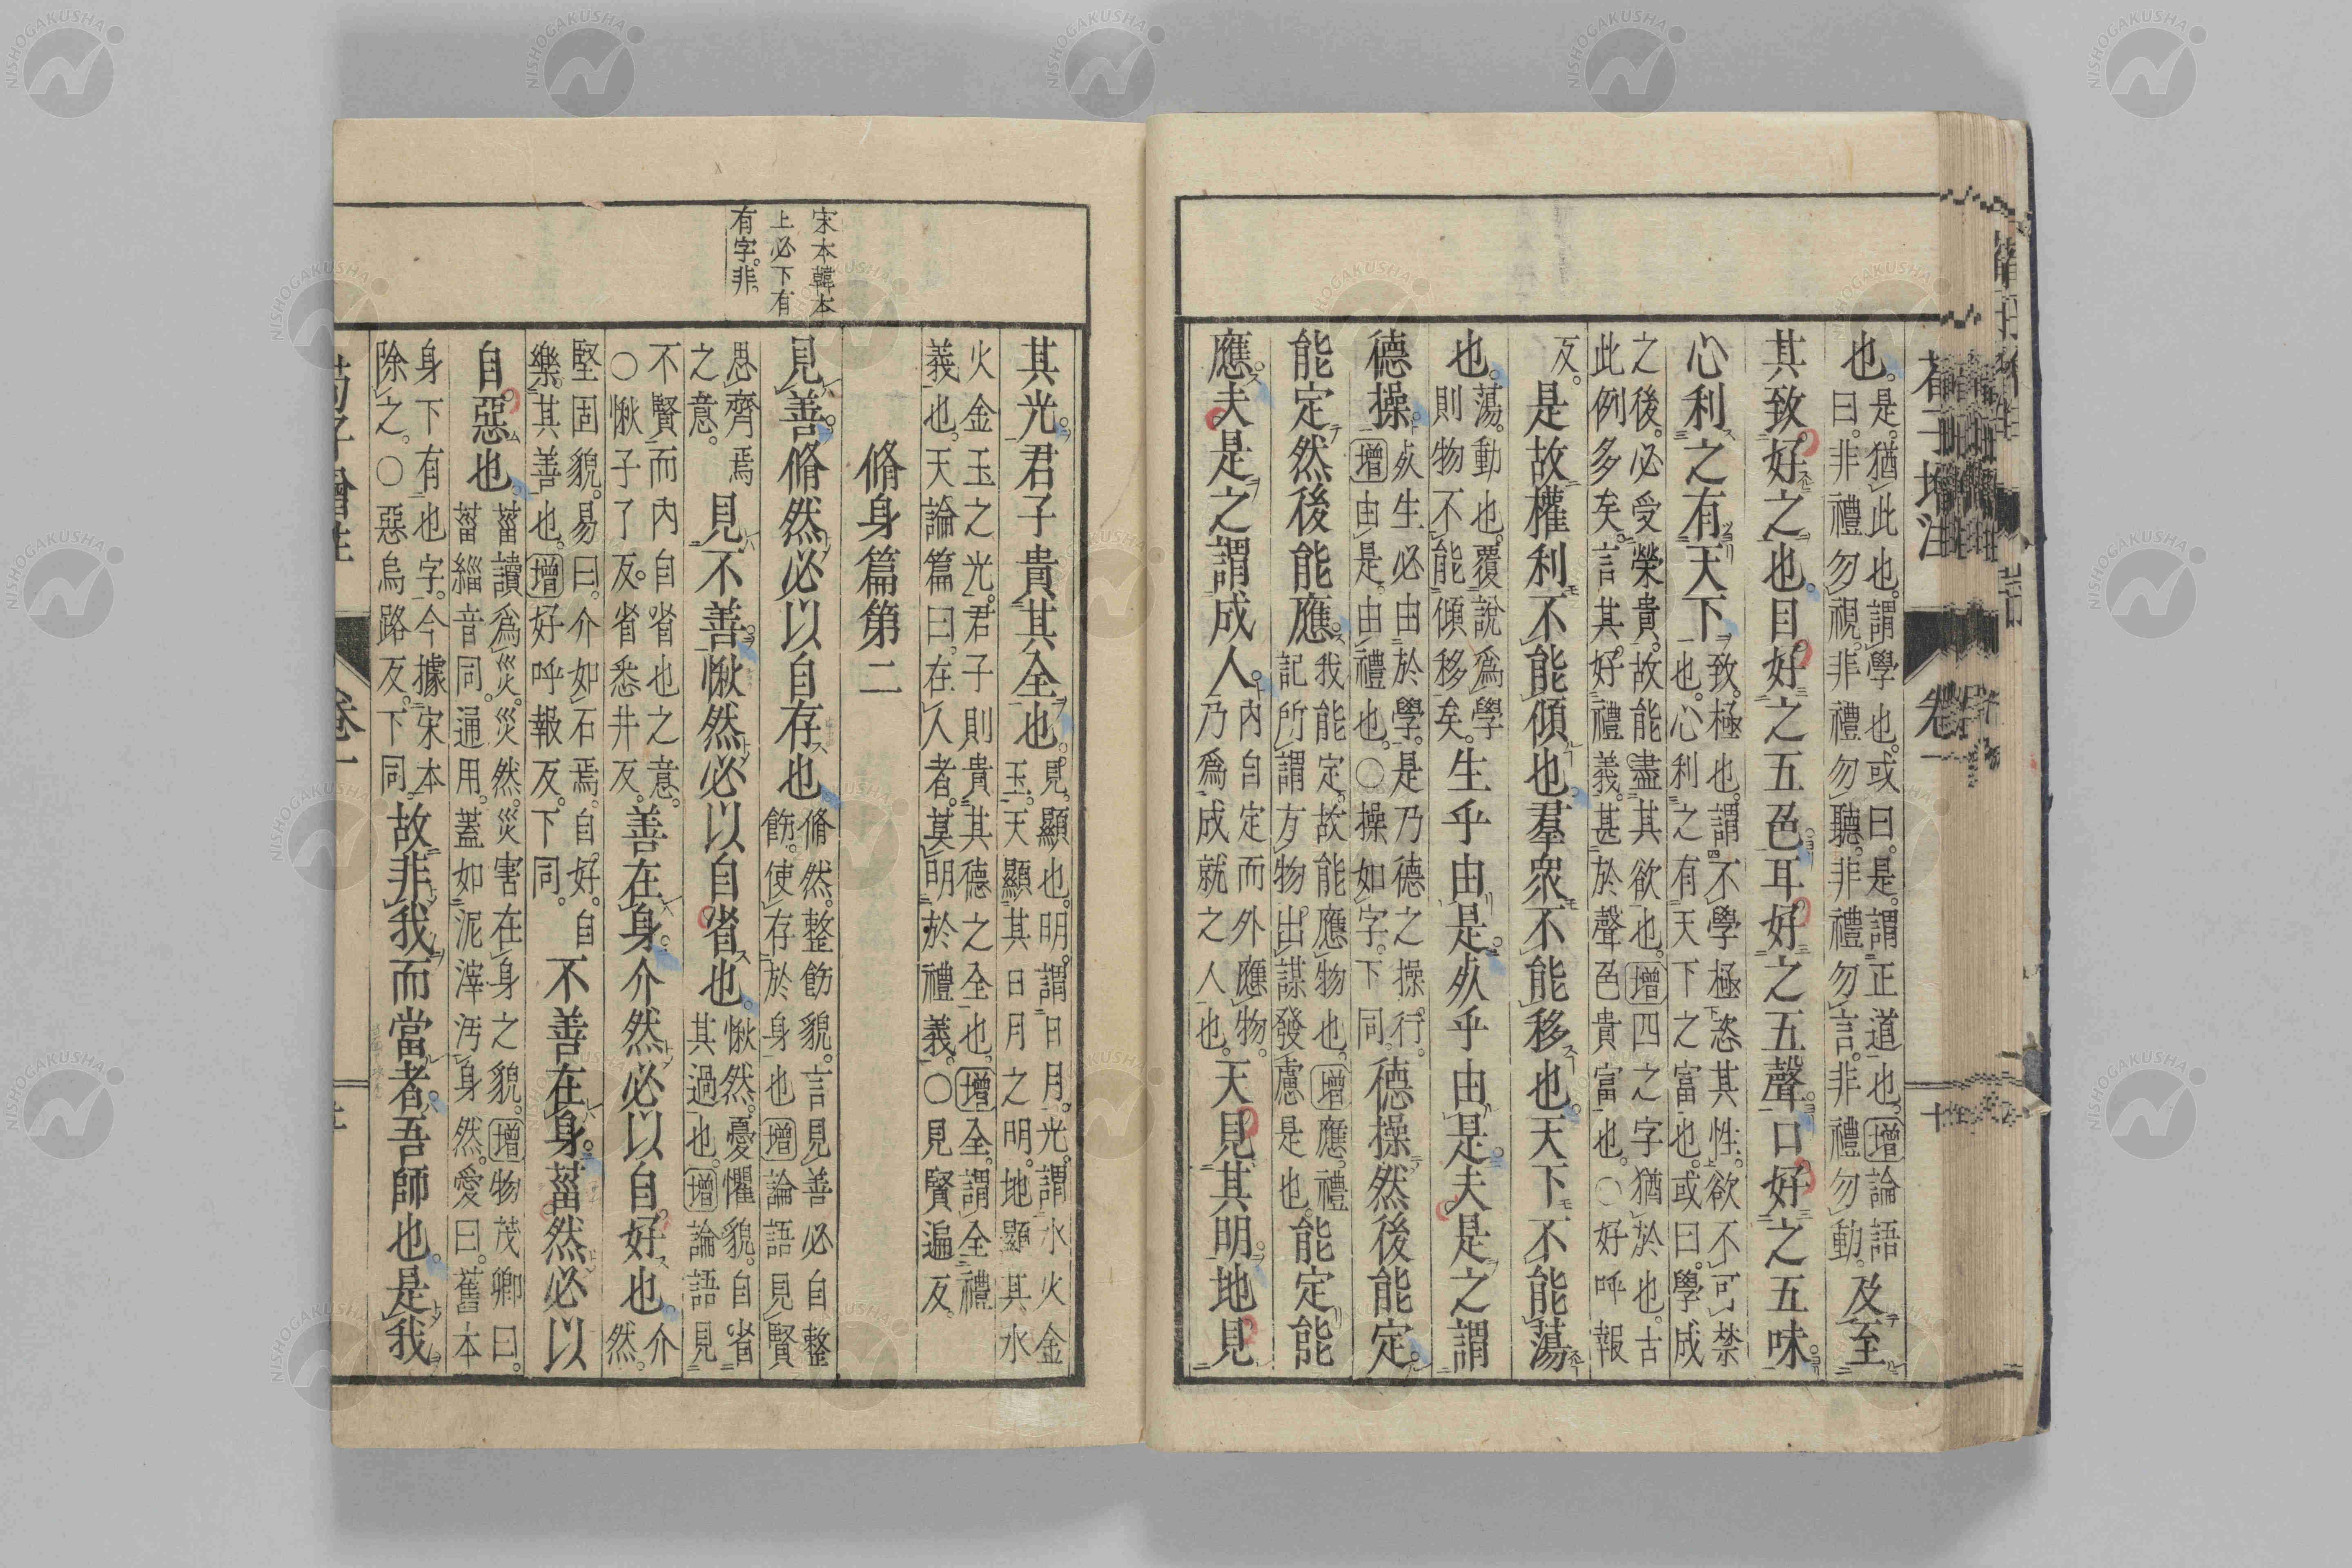 荀子增注 卷一 十
也。是。猶此也。謂學也。或曰。是。謂正道也。增論語曰。非禮勿視。非禮勿聽。非禮勿言。非禮勿動。及至
其致好之也。目。好之五色。耳好之五聲。口好之五味
心利之有天下。致。極也。謂不學極恣其性。欲不可禁也。心利之有天下之富也。或曰。學成
之後。必受榮貴。故能盡其欲也。增四之字猶於也。古此例多矣。言其好禮義。甚於聲色貴富也。○好呼報
反。是故權利不能傾也。羣衆不能移也。天下不能蕩
也。蕩。動也。覆說爲學則物不能傾移矣。生乎由是。死乎由是。夫是之謂
德操。死生必由於學。是乃德之操行。增由是。由禮也。○操如字。下同。德操然後能定
能定然後能應。我能定。故能應物也。增應。禮記所謂方物出謀發慮是也。能定能
應。夫是之謂成人。內自定而外應物。乃爲成就之人也。天見其明。地見
其光。君子貴其全也。見。顯也。明。謂日月。光。謂水火金玉。天顯其日月之明。地顯其水
火金玉之光。君子則貴其德之全也。增全。謂全禮義也。天論篇曰。在人者。莫明於禮義。○見賢遍反。
脩身篇第二
宋本韓本
上必下有
有字。非。
見善。脩然必以自存也脩然。整飭貌。言見善必自整飭。使存於身也增論語見賢
思齊焉之意。見不善愀然必以自省也。愀然。憂懼貌。自省其過也。增論語見
不賢而內自省也之意。○愀子了反。省悉井反。善在身。介然必以自好也。介然。
堅固貌。易曰。介如石焉。自好。自樂其善也。增好呼報反。下同。不善在身。菑然必以
自。惡也。菑讀爲災。災然。災害在身之貌。增物茂卿曰。菑緇音同。通用。蓋如泥滓汚身然。愛曰。舊本
身下有也字。今據宋本除之。○惡烏路反。下同。故非我而當者。吾師也。是我
荀子增注 卷一